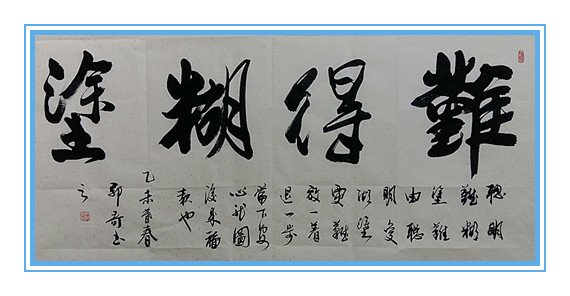 難得糊塗
聰明
難糊
塗難
由聰
明
糊塗
更難
放一着
退一步
當下安
心非圖
後来福
報也
乙未春
郭